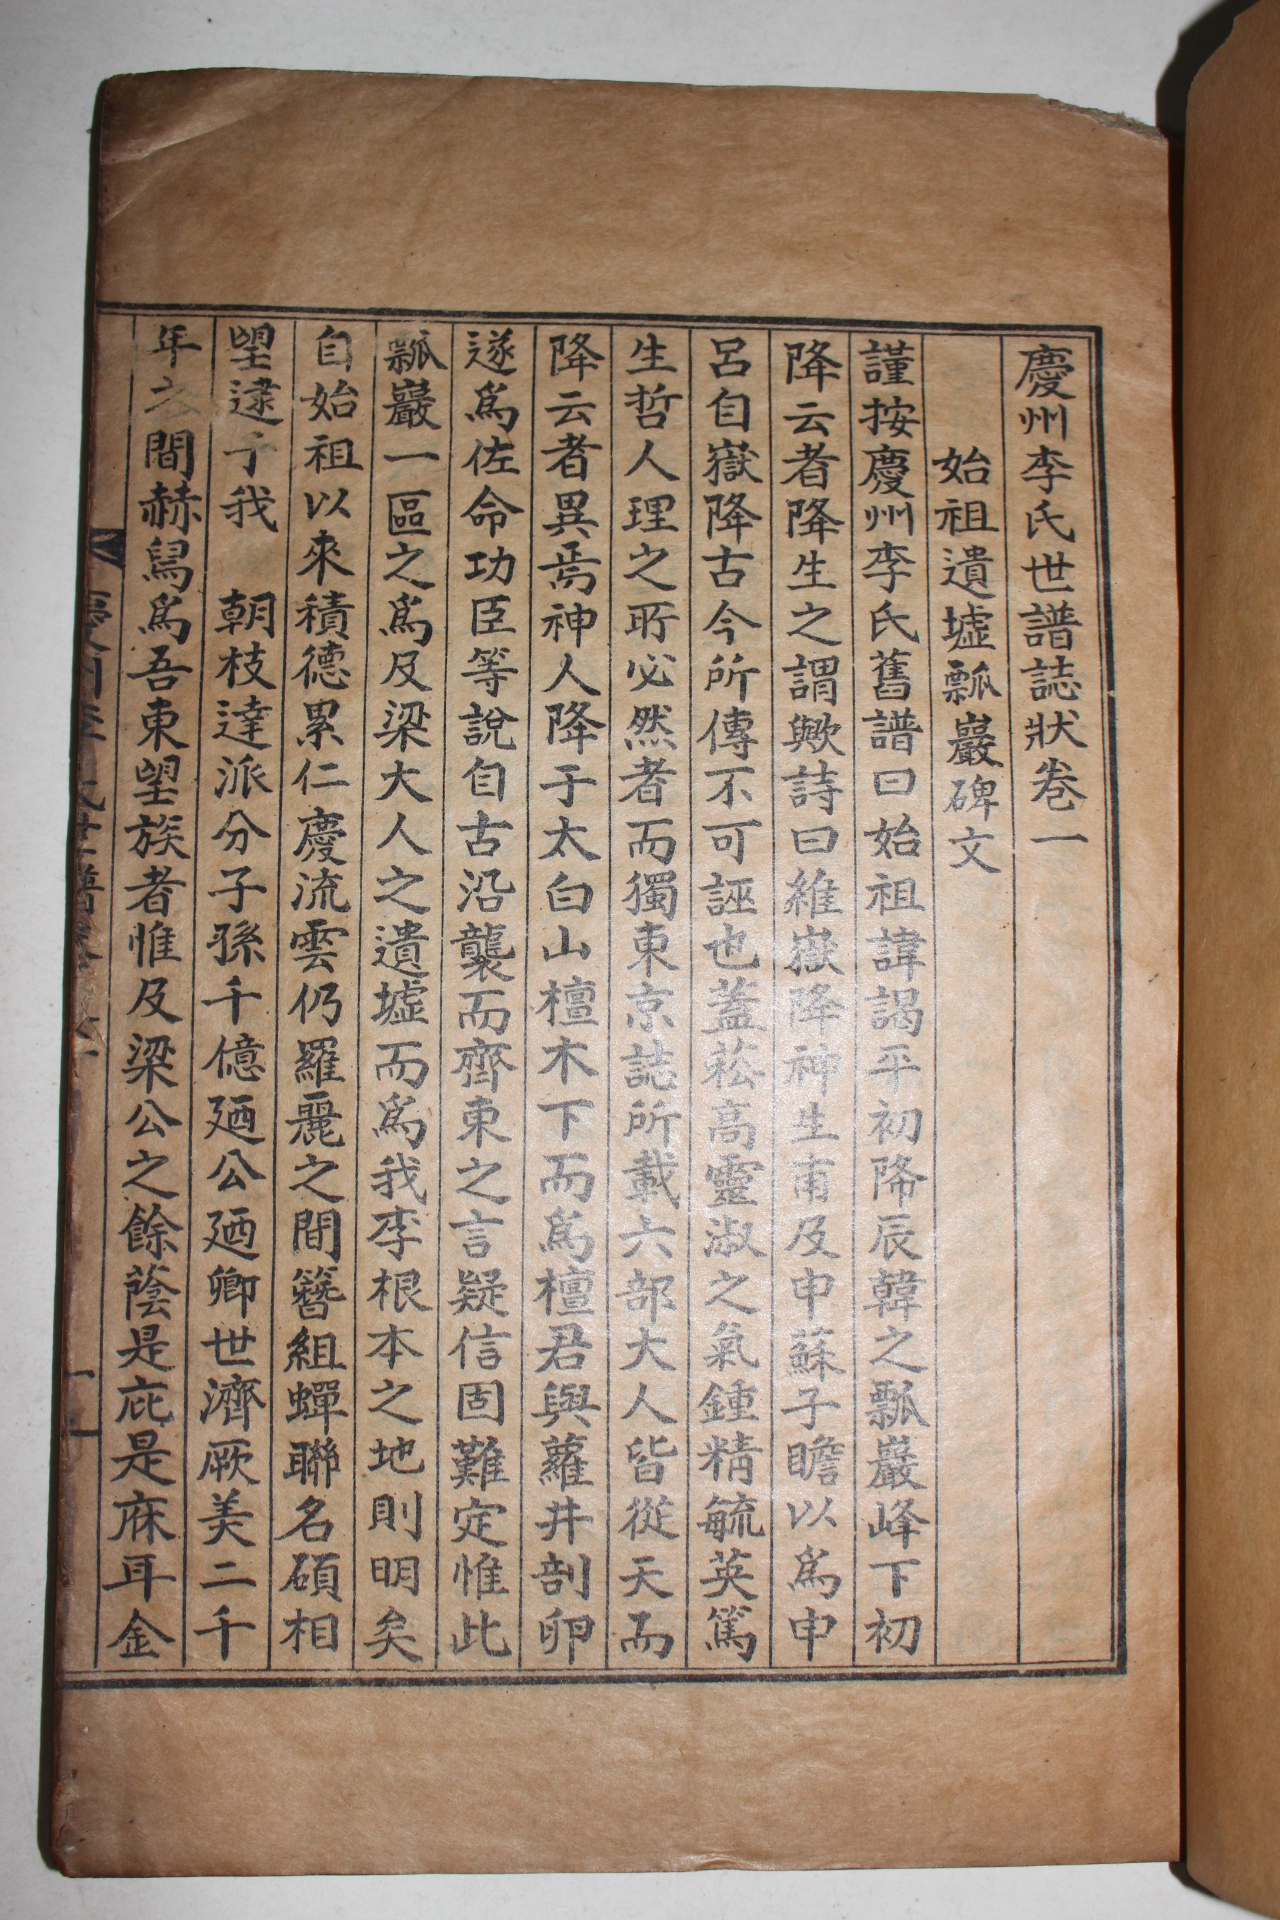 慶州李氏世譜誌狀卷一
始祖遺墟瓢巖碑文
謹按慶州李氏舊譜曰始祖諱謁平初降辰韓之瓢巖峰下初
降云者降生之謂歟詩曰維嶽降神生甫及申蘇子瞻以爲申
呂自嶽降古今所傳不可誣也蓋菘高靈淑之氣鍾精毓英篤
生哲人理之所必然者而獨東京誌所載六部大人皆從天而
降云者異焉神人降于太白山檀木下而爲檀君與蘿井剖卵
遂爲佐命功臣等說自古沿襲而齊東之言疑信固難定惟此
瓢巖一區之爲及梁大人之遺墟而爲我李根本之地則明矣
自始祖以來積德累仁慶流雲仍羅麗之間簪組蟬聯名碩相
望逮于我 朝枝達派分子孫千億廼公廼卿世濟厥美二千
年之間赫舄爲吾東望族者惟及梁公之餘蔭是庇是庥耳金